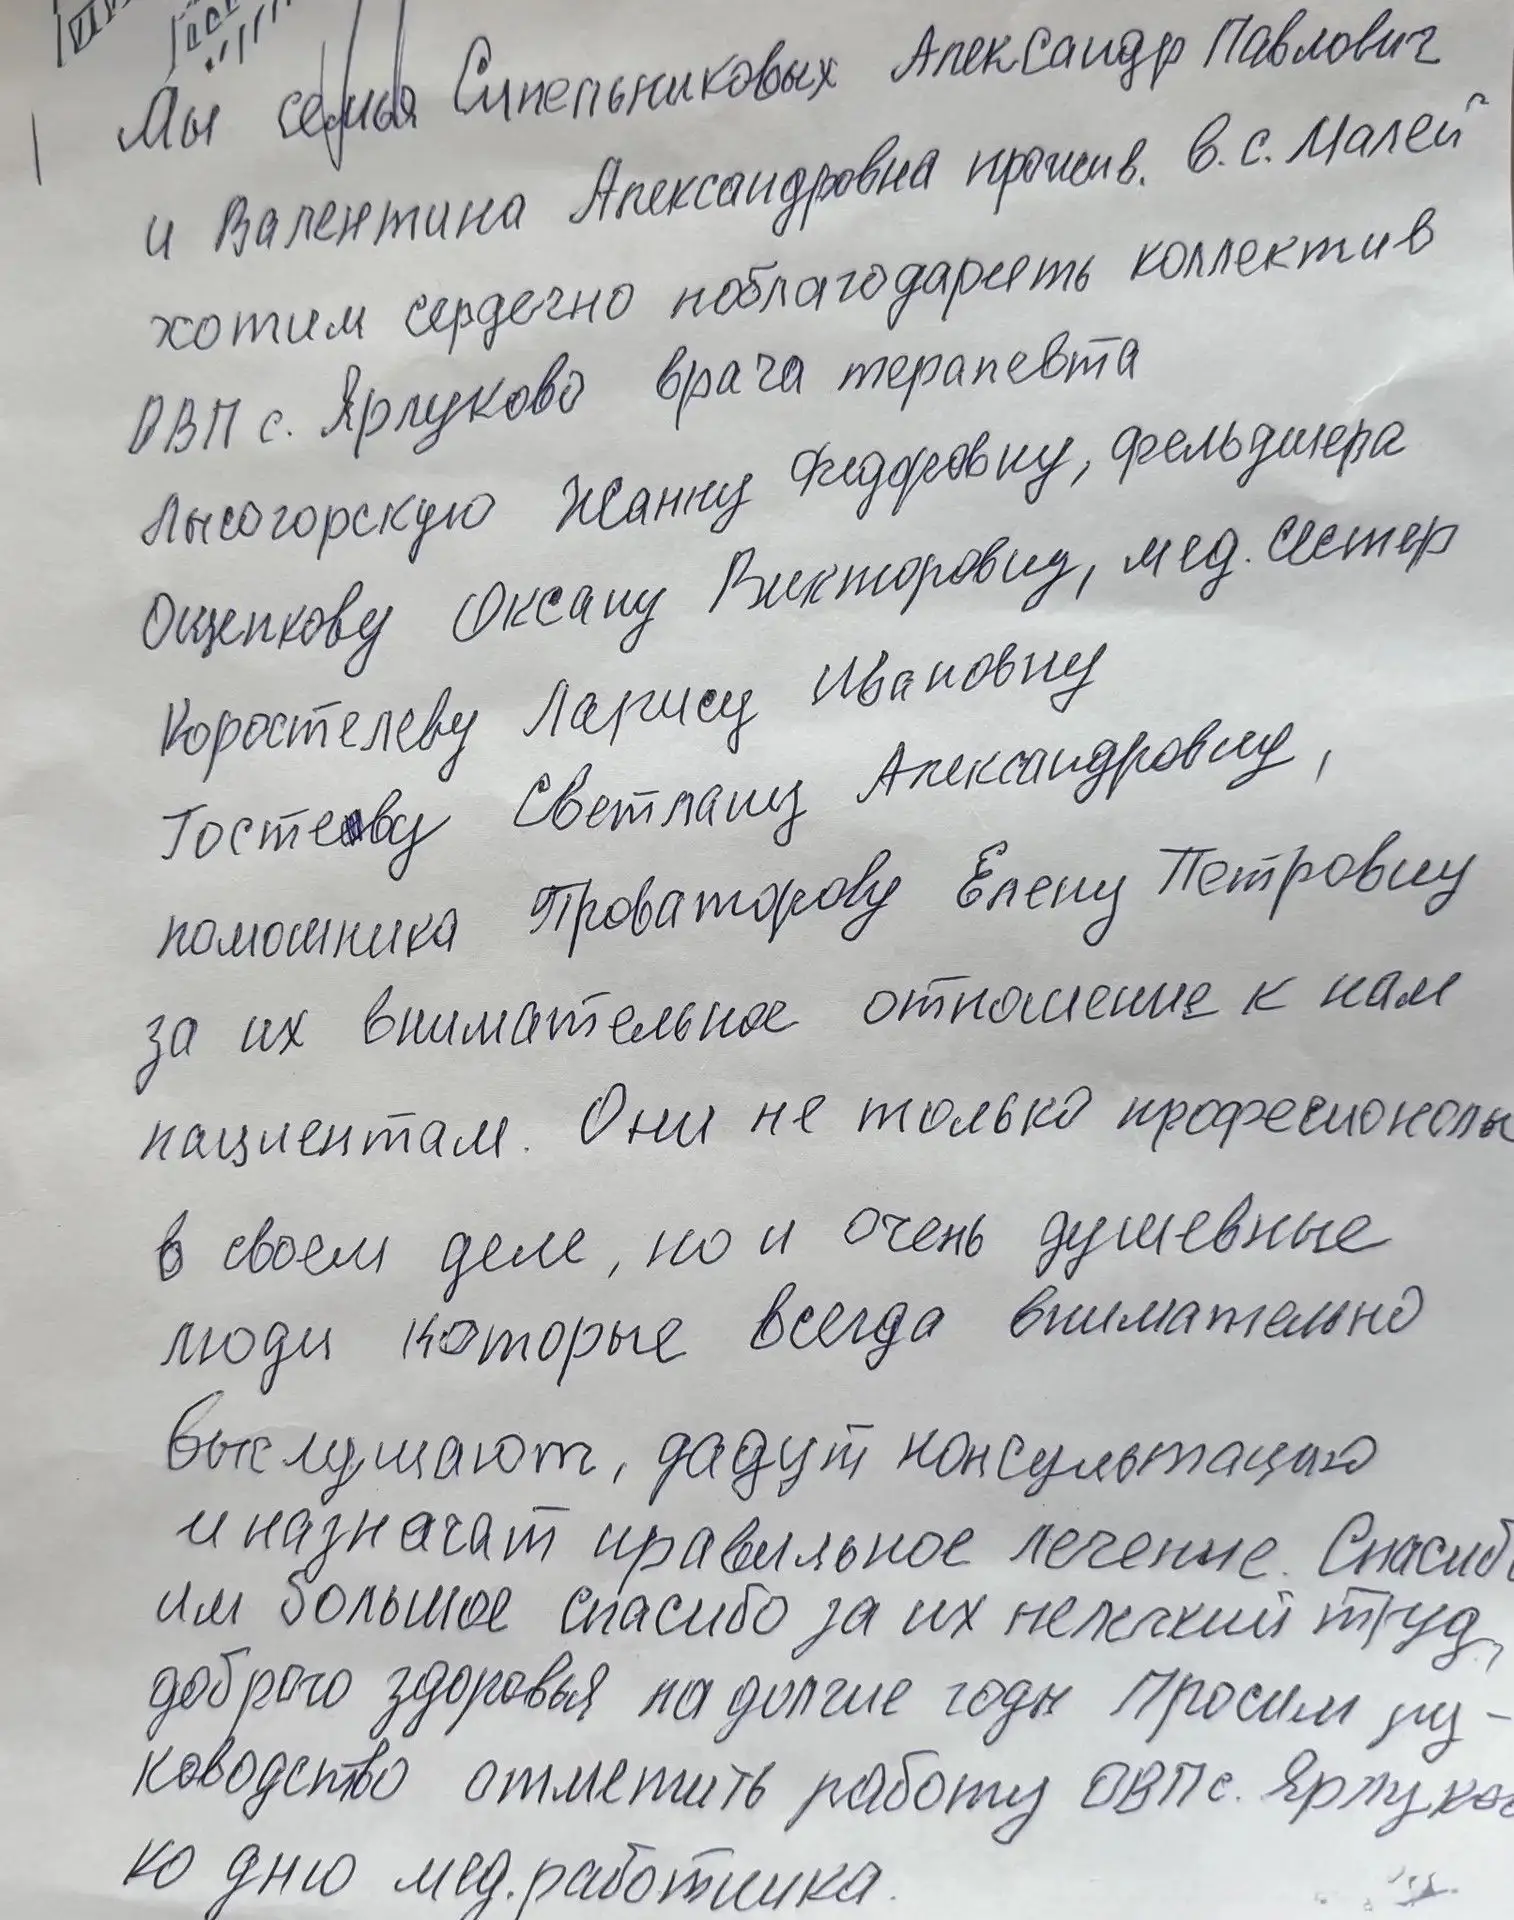 Мы семья Синельниковых Александр Павлович
и Валентина Александровна прожив. в.с. Малей
хотим сердечно поблагодарить коллектив
ОВП с. Ярлуково врача терапевта
Лысогорскую Жанну Федоровну, фельдшера
Ощепкову Оксану Викторовну, мед. сестер
Коростелеву Ларису Ивановну
Гостеву Светлану Александровну,
помошника Проваторову Елену Петровну
за их внимательное отношение к нам
пациентам. Они не только професионолы
в своем деле, но и очень душевные
люди которые всегда внимательно
выслушают, дадут консультацию
и назначат правильное лечение. Спасибо
им большое спасибо за их нелегкий труд,
доброго здоровья на долгие годы Просим ру-
ководство отметить работу ОВП с. Ярлуково
ко дню мед. работника.